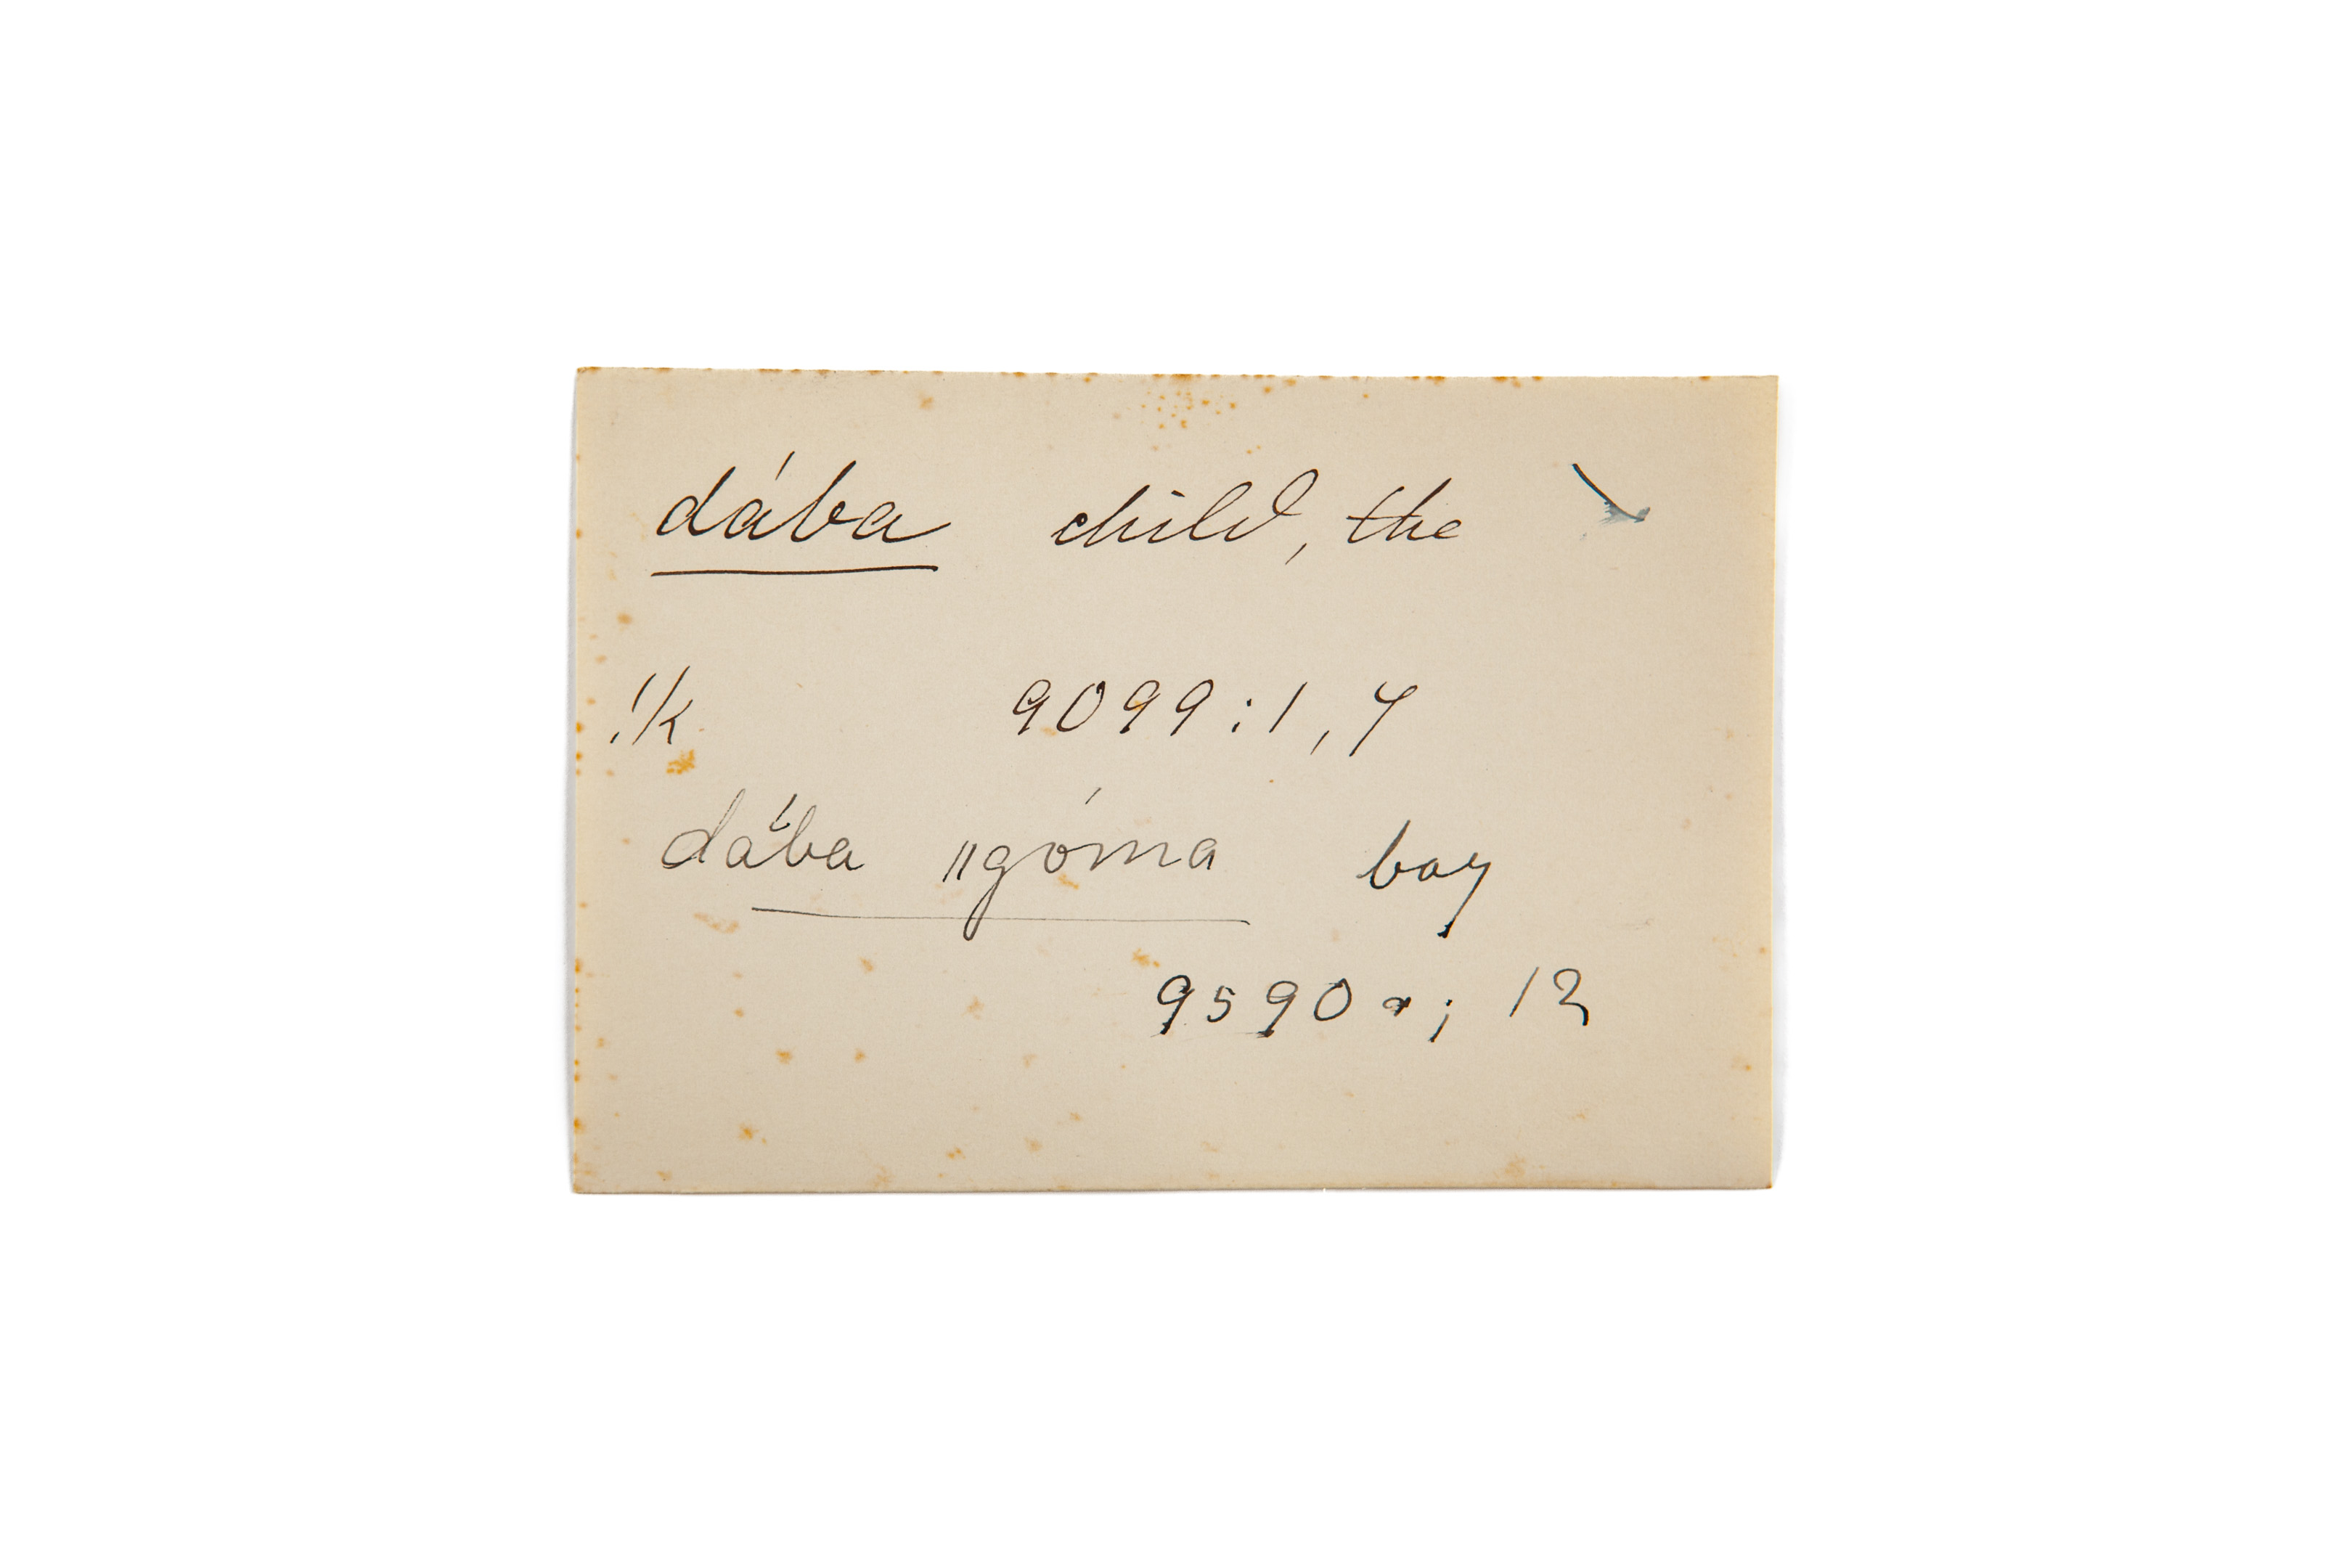 dába child, the
!k 9099:1,7
dába ǁgóma boy
9590a; 12